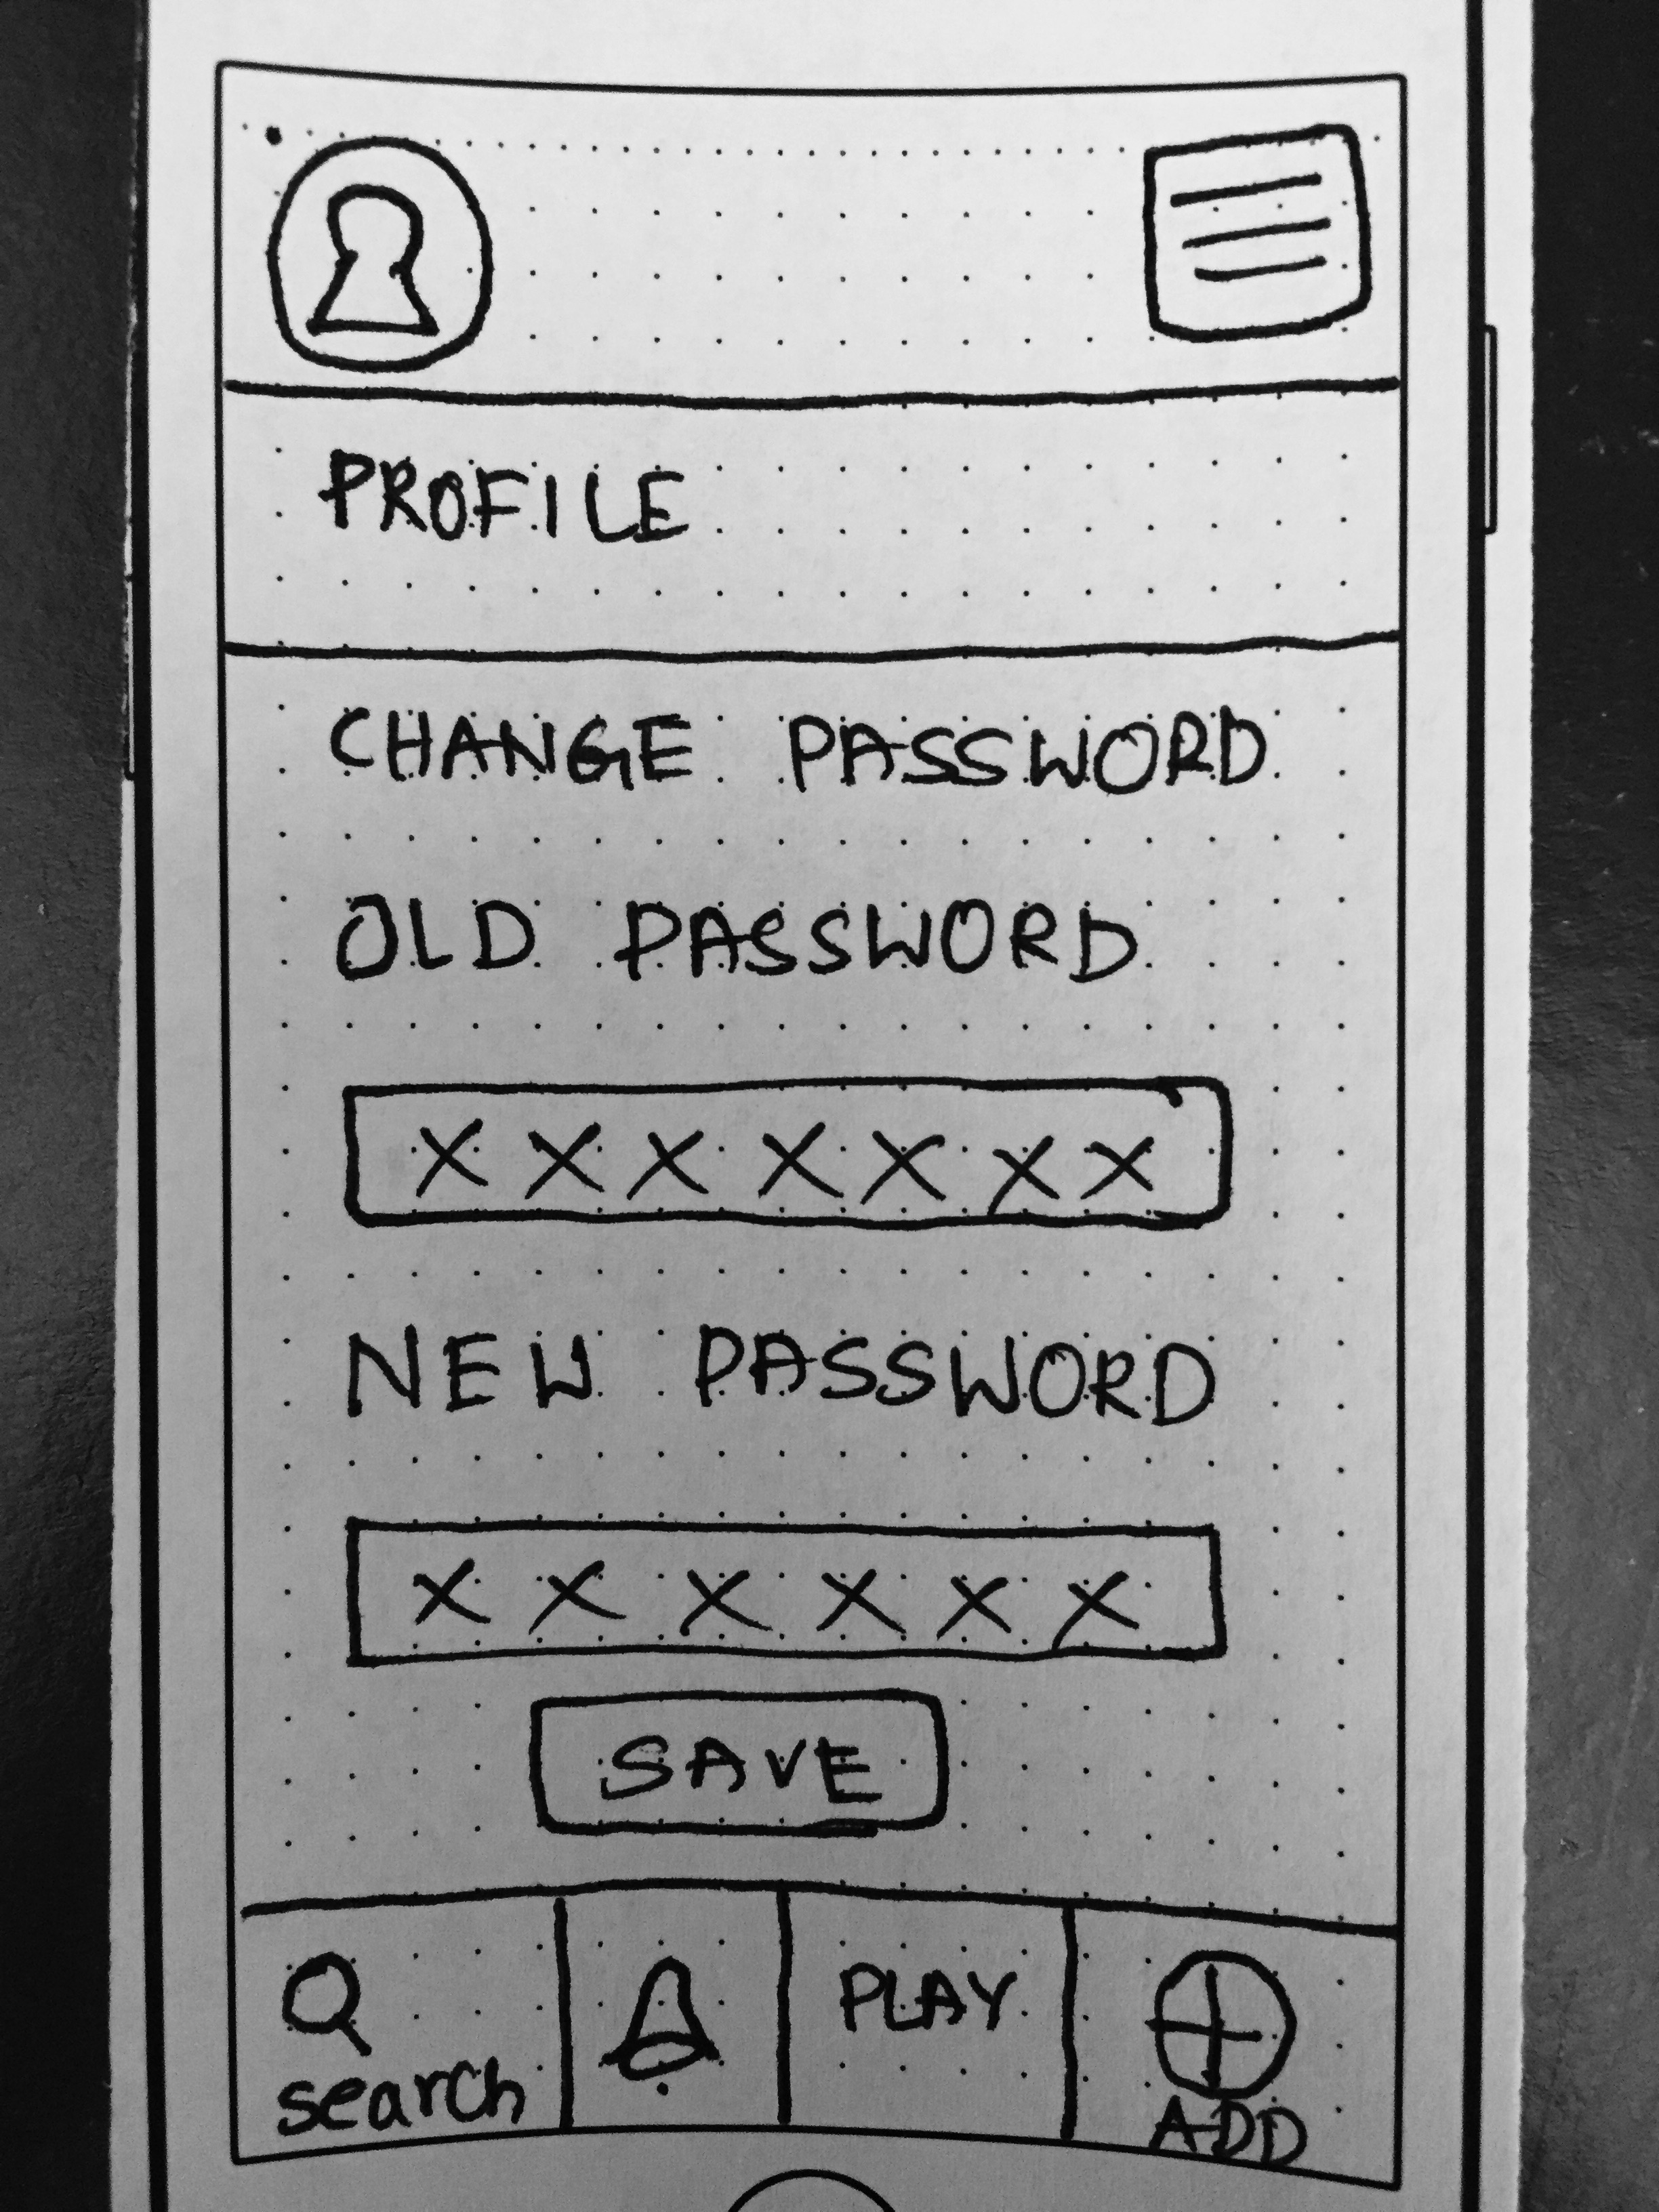 PROFILE
CHANGE PASSWORD
OLD PASSWORD
X X X X X X X
NEW PASSWORD
X X X X X X
SAVE
search
PLAY
ADD